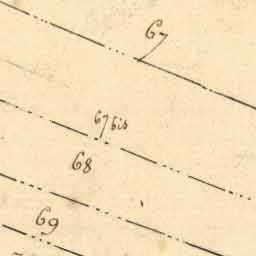 67
67 bis
68
69